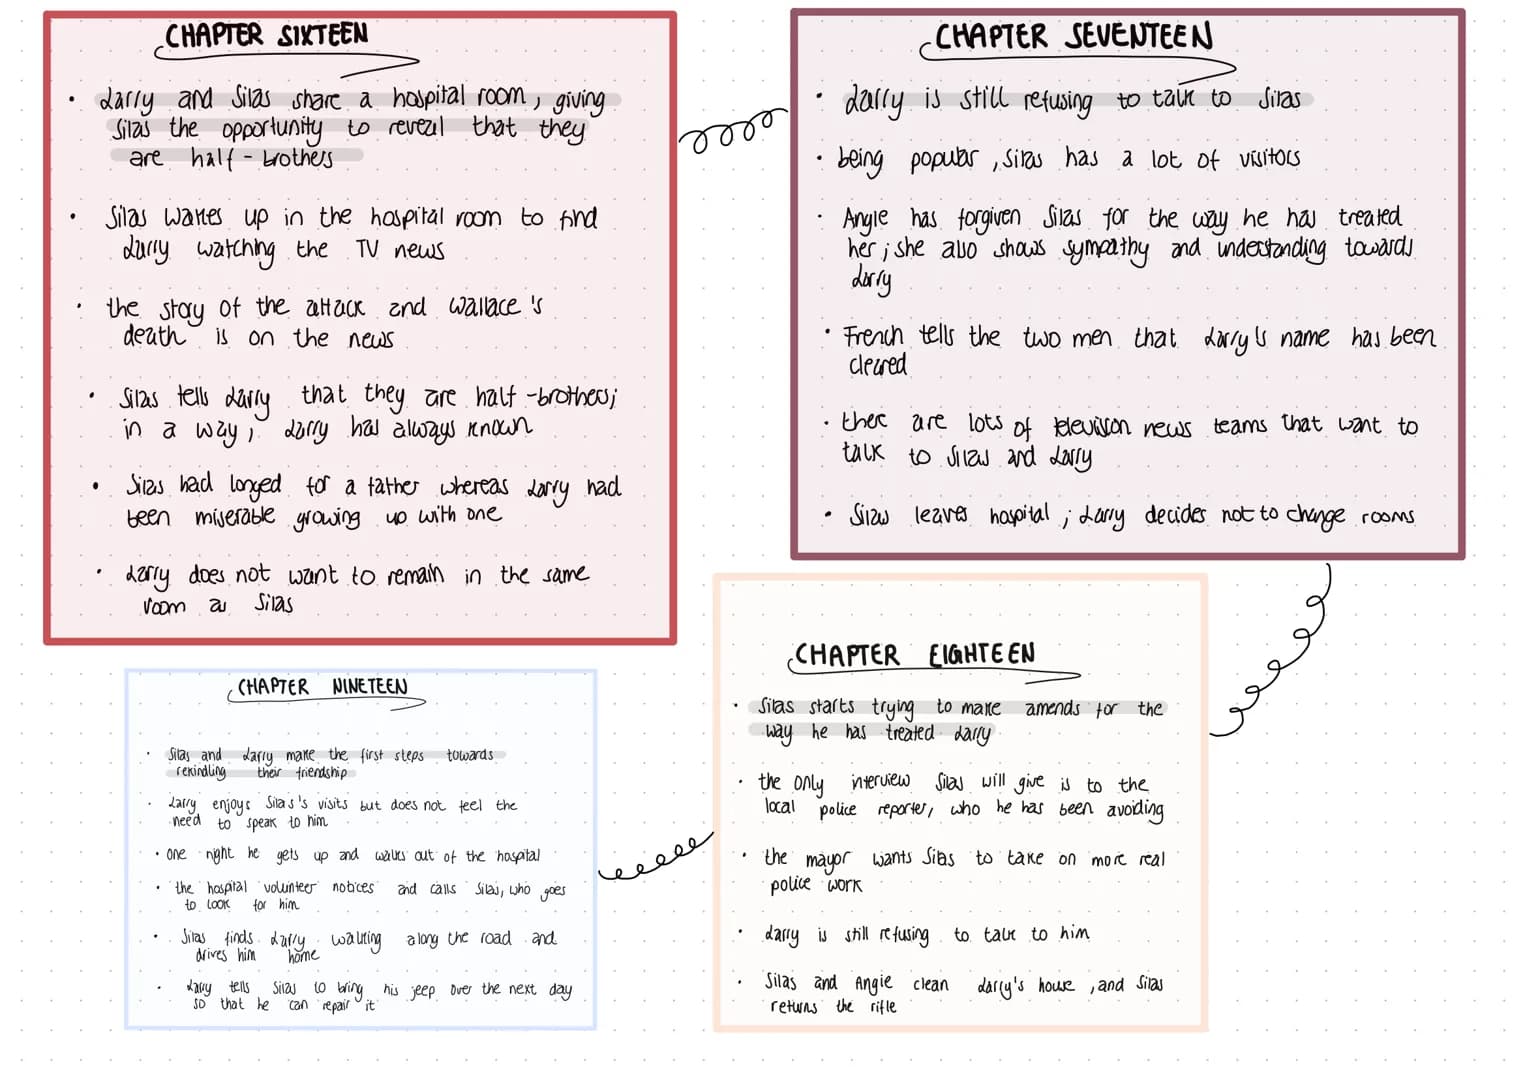 CHAPTER SIXTEEN
• Larry and Silas share a hospital room, giving
Silas the opportunity to reveal that they
are half-brothers
• Silas wakes up in the hospital room to find
Larry watching the TV news
• the story of the attack and Wallace's
death is on the news
• Silas tells Larry that they are half-brothers;
in a way, Larry has always known
• Silas had longed for a father whereas Larry had
been miserable growing up with one
• Larry does not want to remain in the same
room as Silas
CHAPTER SEVENTEEN
• Larry is still refusing to talk to Silas
• being popular, Silas has a lot of visitors
• Angie has forgiven Silas for the way he has treated
her; she also shows sympathy and understanding towards
Larry
• French tells the two men that Larry's name has been
cleared
• there are lots of television news teams that want to
talk to Silas and Larry
• Silas leaves hospital; Larry decides not to change rooms
CHAPTER EIGHTEEN
• Silas starts trying to make amends for the
way he has treated Larry
• the only interview Silas will give is to the
local police reporter, who he has been avoiding
• the mayor wants Silas to take on more real
police work
• Larry is still refusing to talk to him
• Silas and Angie clean Larry's house, and Silas
returns the rifle
CHAPTER NINETEEN
• Silas and Larry make the first steps towards
rekindling their friendship
• Larry enjoys Silas's visits but does not feel the
need to speak to him
• one night he gets up and walks out of the hospital
• the hospital volunteer notices and calls Silas, who goes
to look for him
• Silas finds Larry walking along the road and
drives him home
• Larry tells Silas to bring his jeep over the next day
so that he can repair it